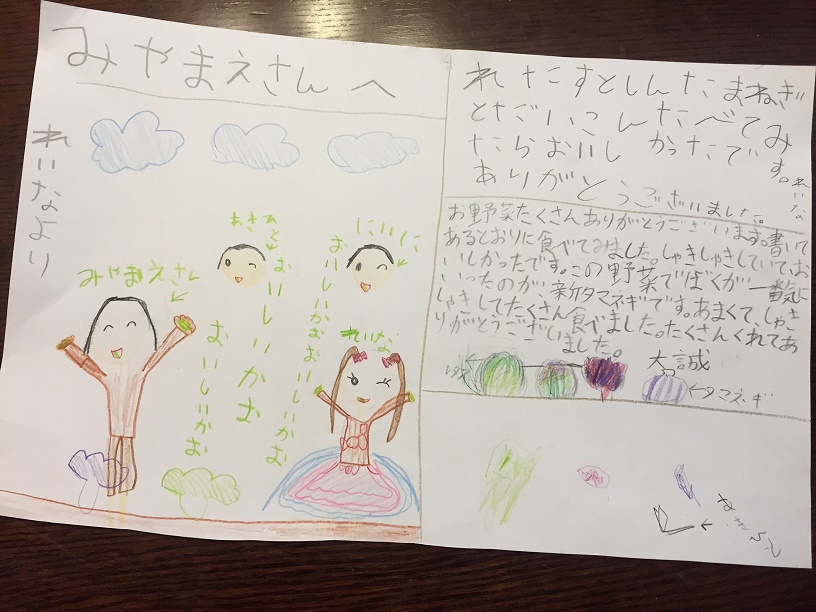 みやまえさんへ
れいなより
みやまえさん
あき
おいしいかお
おいしいかお
にいに
おいしいかお
おいしいかお
れいな
れたすとしんたまねぎ
とだいこんたべてみ
たらおいしかったで
す。
ありがとうございました。
れいな
お野菜たくさんありがとうございます。書いて
あるとおりに食べてみました。しゃきしゃきしていてお
いしかったです。この野菜でぼくが一番気に
いったのが、新タマネギです。あまくて、しゃき
しゃきしてたくさん食べました。たくさんくれてあ
りがとうございました。
大誠
タマネギ